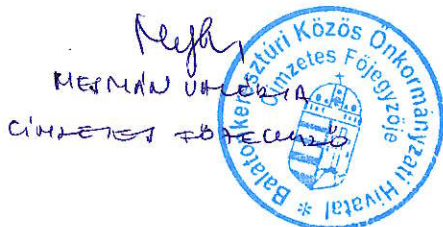 MESMÁN VALÉRIA
CÍMZETES FŐJEGYZŐ
Balatonkeresztúri Közös Önkormányzati Hivatal *
Címzetes Főjegyzője